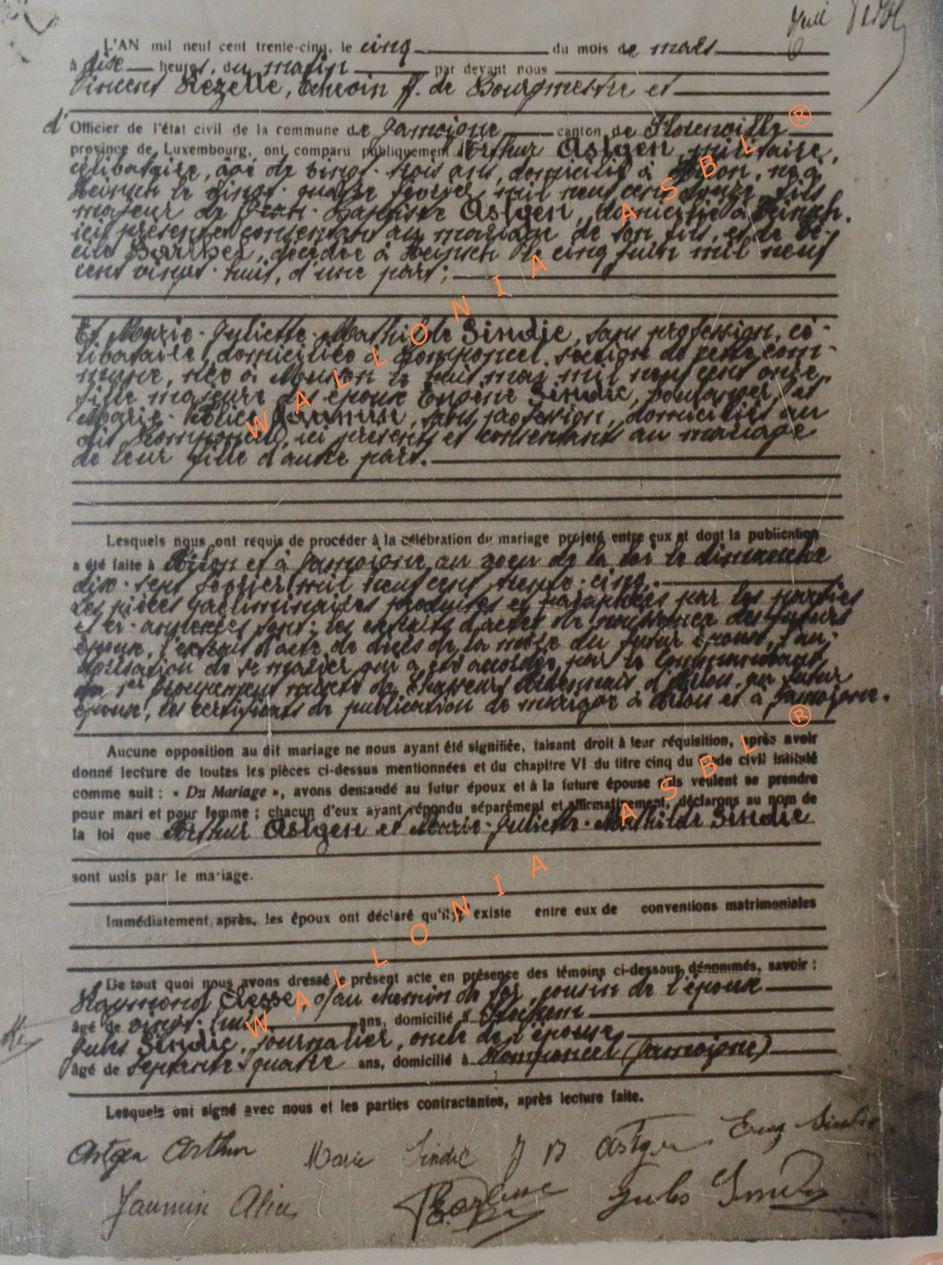 L'AN mil neuf cent trente-cinq, le cinq du mois de mars
à dix heures, du matin par devant nous
Vincent Rézette, Echevin ff. de Bourgmestre et
d' Officier de l'état civil de la commune de Jamoigne canton de Florenville
province de Luxembourg, ont comparu publiquement Arthur Astgen, militaire,
célibataire, âgé de vingt-trois ans, domicilié à Arlon, né à
Heinsch le vingt-quatre février mil neuf cent douze, fils
majeur de Jean-Baptiste Astgen, domicilié à Heinsch,
ici présent et consentant au mariage de son fils, et de
Barbe, décédée à Heinsch le cinq juin mil neuf
cent vingt-huit, d'une part;
Et Marie-Juliette-Mathilde Sindic, sans profession, cé-
libataire, domiciliée à Romponcel, section de cette com-
mune, née à le huit mai mil neuf cent onze,
fille majeure des époux Eugène Sindic, et
Marie Jaumin, sans profession, domiciliés au
dit Romponcel, ici présents et consentants au mariage
de leur fille d'autre part.
Lesquels nous ont requis de procéder à la célébration du mariage projeté entre eux et dont la publication
a été faite à Arlon et à Jamoigne au voeu de la loi le dimanche
dix-sept février mil neuf cent trente-cinq.
Les pièces préliminaires produites et paraphées par les parties
et ci-annexées sont: les extraits d'actes de naissance des futurs
époux, l'extrait d'acte de décès de la mère du futur époux, l'au-
torisation de se marier qui a été accordée par le commandant
du 1er groupement mixte de Chasseurs Ardennais d'Arlon, au futur
époux, les certificats de publication de mariage à Arlon et à Jamoigne.
Aucune opposition au dit mariage ne nous ayant été signifiée, faisant droit à leur réquisition, après avoir
donné lecture de toutes les pièces ci-dessus mentionnées et du chapitre VI du titre cinq du code civil intitulé
comme suit : « Du Mariage », avons demandé au futur époux et à la future épouse s'ils veulent se prendre
pour mari et pour femme ; chacun d'eux ayant répondu séparément et affirmativement, déclarons au nom de
la loi que Arthur Astgen et Marie-Juliette-Mathilde Sindic
sont unis par le mariage.
Immédiatement après, les époux ont déclaré qu'il existe entre eux de conventions matrimoniales
De tout quoi nous avons dressé le présent acte en présence des témoins ci-dessous dénommés, savoir :
Raymond au chemin de fer, cousin de l'épouse
âgé de vingt-huit ans, domicilié à
Jules Sindic, journalier, oncle de l'épouse
âgé de septante-quatre ans, domicilié à Romponcel (Jamoigne)
Lesquels ont signé avec nous et les parties contractantes, après lecture faite.
Astgen Arthur Marie Sindic J B Astgen Eug Sindic
Jaumin Alice Jules Sindic
WALLONIA ASBL ®
WALLONIA ASBL ®